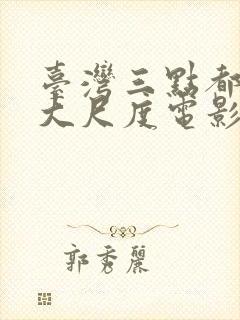 臺灣三點都
大尺度電影
郭秀麗